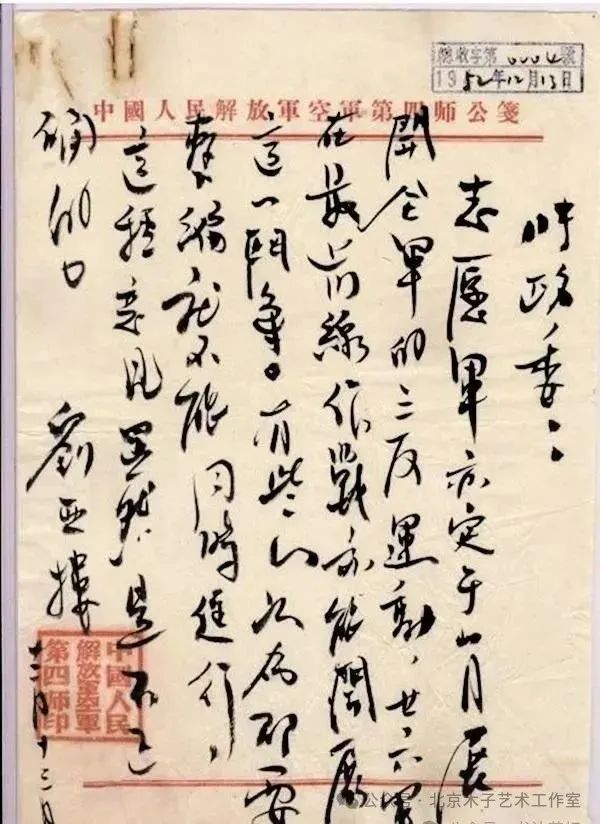 總收字第0004號
1952年12月13日
中國人民解放軍空軍第四师公箋
時政委：
志愿軍亦定于一月展
開全軍的三反運動，廿六軍
在最前線作戰亦能開展
這一鬥爭。有些人以為那要
整編就不能同時進行，
這種意見显然是不正
確的。
劉亞樓
十二月十三日
中國人民
解放軍空軍
第四师印
公众号·北京木子艺术工作室